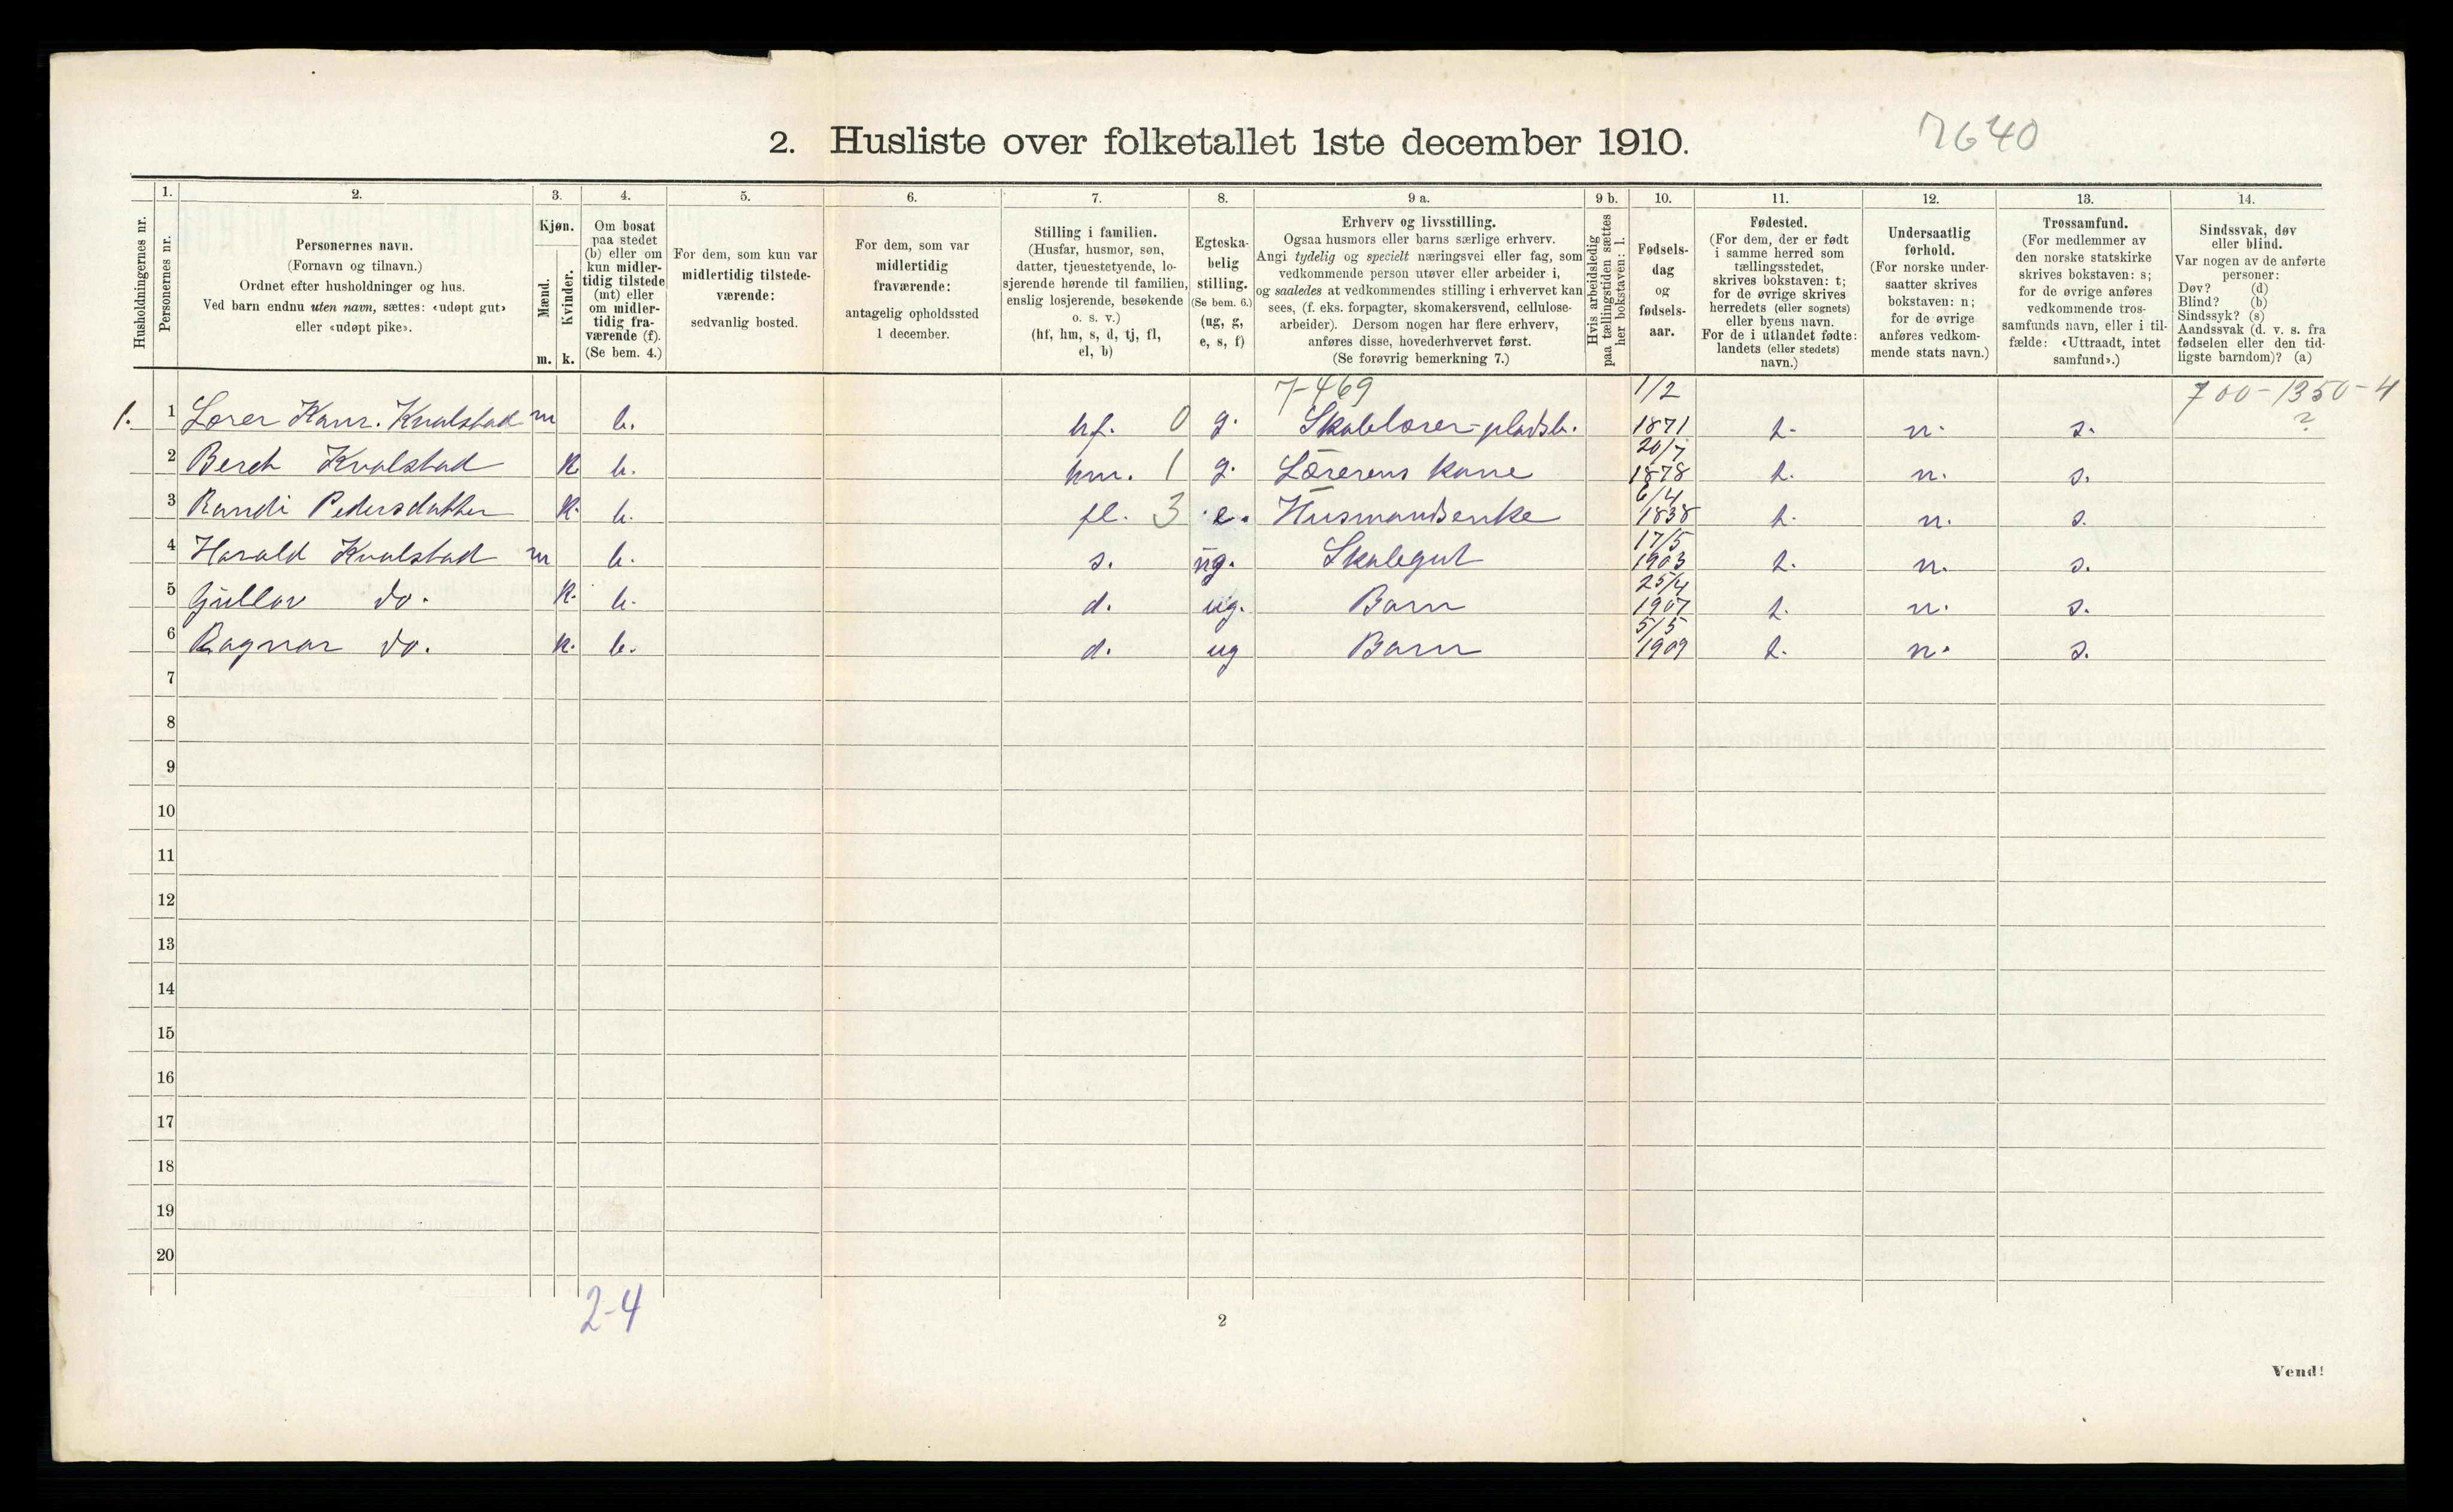 2. Husliste over folketallet 1ste december 1910.
7640
1. 2. 3. 4. 5. 6. 7. 8. 9 a. 9 b. 10. 11. 12. 13. 14.
Husholdningernes nr.
Personernes nr.
Personernes navn.
(Fornavn og tilnavn.)
Ordnet efter husholdninger og hus.
Ved barn endnu uten navn, sættes: «udøpt gut»
eller «udøpt pike».
Kjøn.
Mænd.
Kvinder.
m. k.
Om bosat
paa stedet
(b) eller om
kun midler-
tidig tilstede
(mt) eller
om midler-
tidig fra-
værende (f).
(Se bem. 4.)
For dem, som kun var
midlertidig tilstede-
værende:
sedvanlig bosted.
For dem, som var
midlertidig
fraværende:
antagelig opholdssted
1 december.
Stilling i familien.
(Husfar, husmor, søn,
datter, tjenestetyende, lo-
sjerende hørende til familien,
enslig losjerende, besøkende
o. s. v.)
(hf, hm, s, d, tj, fl,
el, b)
Egteska-
belig
stilling.
(Se bem. 6.)
(ug, g,
e, s, f)
Erhverv og livsstilling.
Ogsaa husmors eller barns særlige erhverv.
Angi tydelig og specielt næringsvei eller fag, som
vedkommende person utøver eller arbeider i,
og saaledes at vedkommendes stilling i erhvervet kan
sees, (f. eks. forpagter, skomakersvend, cellulose-
arbeider). Dersom nogen har flere erhverv,
anføres disse, hovederhvervet først.
(Se forøvrig bemerkning 7.)
Hvis arbeidsledig
paa tællingstiden sættes
her bokstaven: l.
Fødsels-
dag
og
fødsels-
aar.
Fødested.
(For dem, der er født
i samme herred som
tællingsstedet,
skrives bokstaven: t;
for de øvrige skrives
herredets (eller sognets)
eller byens navn.
For de i utlandet fødte:
landets (eller stedets)
navn.)
Undersaatlig
forhold.
(For norske under-
saatter skrives
bokstaven: n;
for de øvrige
anføres vedkom-
mende stats navn.)
Trossamfund.
(For medlemmer av
den norske statskirke
skrives bokstaven: s;
for de øvrige anføres
vedkommende tros-
samfunds navn, eller i til-
fælde: «Uttraadt, intet
samfund».)
Sindssvak, døv
eller blind.
Var nogen av de anførte
personer:
Døv? (d)
Blind? (b)
Sindssyk? (s)
Aandssvak (d. v. s. fra
fødselen eller den tid-
ligste barndom)? (a)
7-469 1/2 700-1350-4
1. 1 Lærer Kvalstad m b. hf. 0 g. Skolelærer-pladsb. 1871 t. n. s. ?
20/7
2 Beret Kvalstad k b. hm. 1 g. Lærerens kone 1878 t. n. s.
6/4
3 Randi Pedersdatter k. b. fl. 3 e. Husmandsenke 1838 t. n. s.
17/5
4 Harald Kvalstad m b. s. ug. Skolegut 1903 t. n. s.
25/4
5 Gullov do. k. b. d. ug. Barn 1907 t. n. s.
5/5
6 Ragnar do. k. b. d. ug Barn 1909 t. n. s.
7
8
9
10
11
12
13
14
15
16
17
18
19
20
2-4
2
Vend!